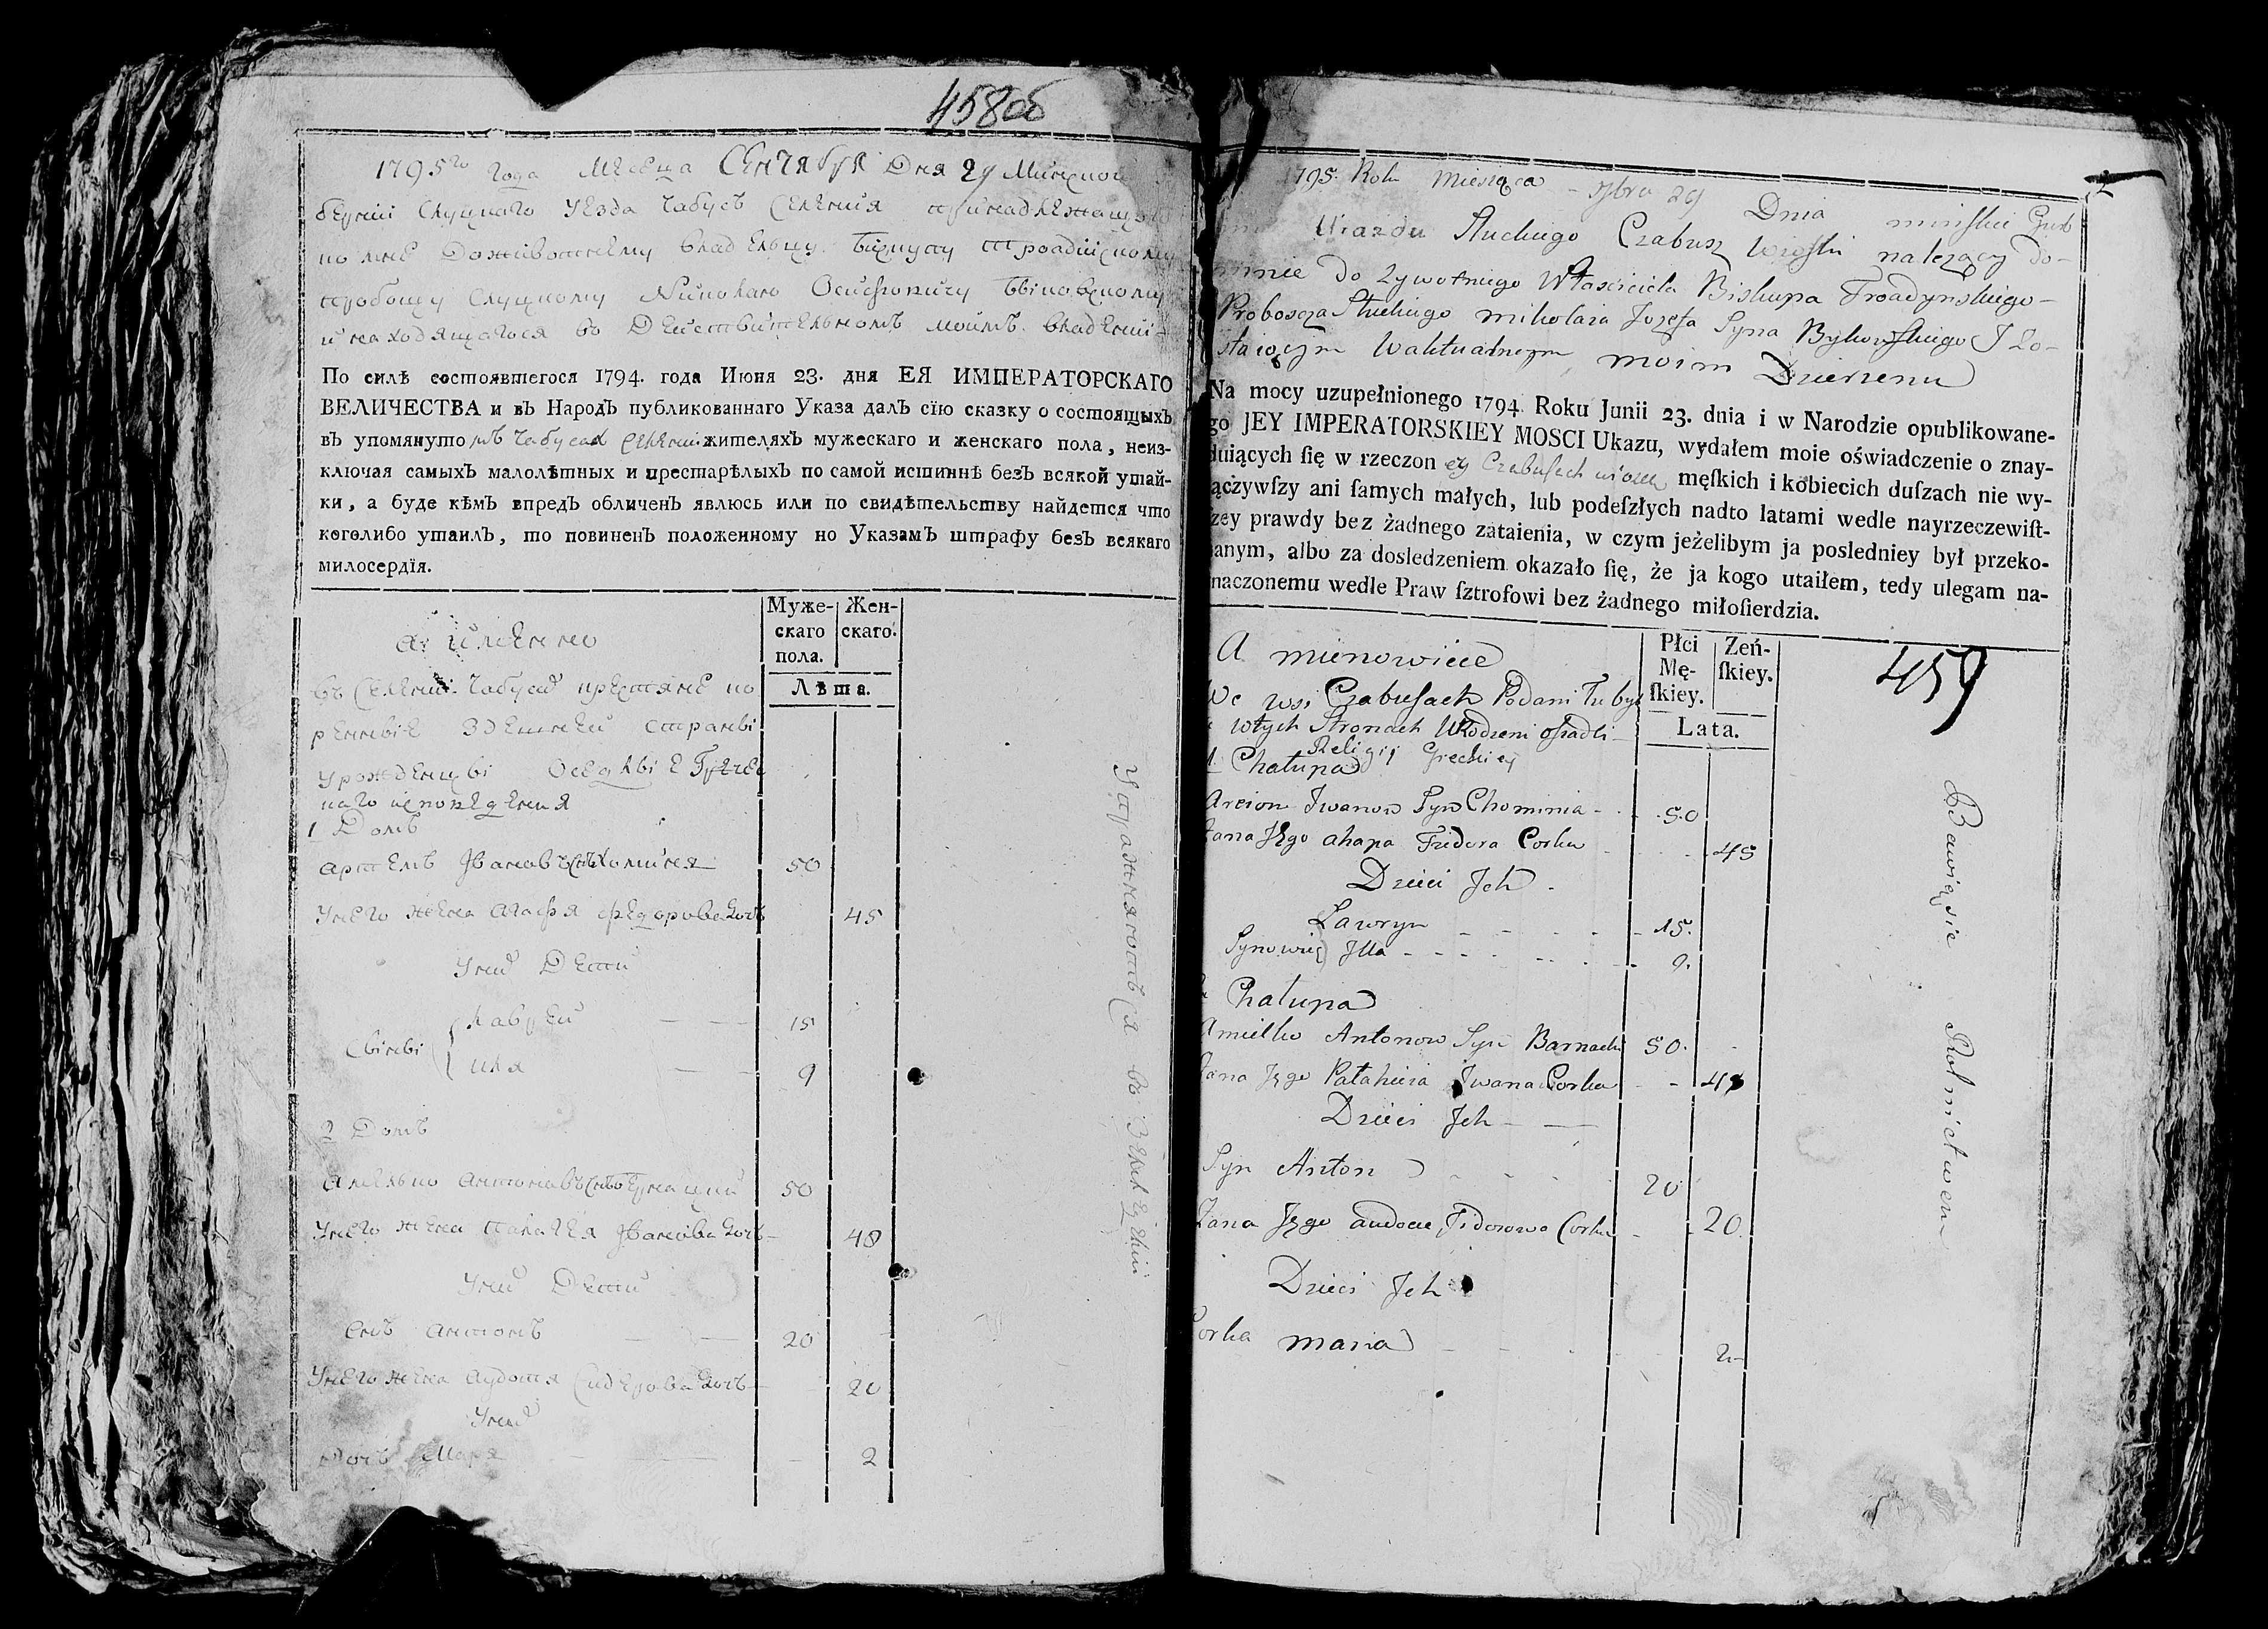 458об
1795го года Месеца Сентября Дня 29 Минской
бернии Слуцкаго Уезда Чабусъ Селения принадлежащого
по мне Доживотнему владельцу Бискупу Троадинскому
пробощу Слуцкому Николаю Осифовичу Быковскому
и находящагося во Действительномъ моимъ владении
По силѣ состоявшегося 1794. года Июня 23. дня ЕЯ ИМПЕРАТОРСКАГО
ВЕЛИЧЕСТВА и въ Народъ публикованнаго Указа далъ сїю сказку о состоящыхъ
въ упомянутомъ Чабусах Селении жителяхъ мужескаго и женскаго пола, неиз-
ключая самыхъ малолѣтныхъ и престарѣлыхъ по самой истиннѣ безъ всякой утай-
ки, а буде кѣмъ впредь обличенъ явлюсь или по свидѣтельству найдется что
коголибо утаилъ, то повиненъ положенному по Указамъ штрафу безъ всякаго
милосердїя.
Муже-
скаго
пола.
Жен-
скаго.
Лѣта.
а имѣнно
въ Селении Чабусах крестяне ко
ренные Здешнеи страны
урожденцы Оседлые Гречес
каго исповедения
1 Домъ
Артемъ Ивановъ Снъ Хоминя 50
Унего жена Агафя Федорова Дочъ 45
Уних Дети
Сыны Лаврен 15
Иля 9
2 Домъ
Амелько Антоновъ Снъ Бернацки 50
Унего жена Палагея Иванова Дочъ 48
Уних Дети
Снъ Антонъ 20
Унего жена Аудотя Сидерова Дочъ 20
Уних
Дочъ Маря 2
Упражняютъся во Земледелии
2
1795. Roku Miesiąca 7bra 29 Dnia minskiei Gub
Uiazdu Słuckiego Czabusz Wioski należący do-
mnie do Zywotniego Własciciela Biskupa Troadynskiego
Proboscza Słuckiego mikołaia Jozefa Syna Bykowskiego J Zo-
staiącym Waktualnym moim Dzierzeniu
Na mocy uzupełnionego 1794. Roku Junii 23. dnia i w Narodzie opublikowane-
go JEY IMPERATORSKIEY MOSCI Ukazu, wydałem moie oświadczenie o znay-
duiących ſię w rzeczoney Czabusach wiosce męſkich i kobiecich duſzach nie wy-
ączywſzy ani ſamych małych, lub podeſzłych nadto latami wedle nayrzeczewiſt-
zey prawdy bez żadnego zataienia, w czym jeżelibym ja posledniey był przeko-
anym, albo za dosledzeniem okazało ſię, że ja kogo utaiłem, tedy ulegam na-
naczonemu wedle Praw ſztrofowi bez żadnego miłoſierdzia.
Płci
Mę-
ſkiey.
Żeń-
ſkiey.
Lata.
459
A mienowicie
We wsi Czabusach Podani Tu by
w tych Stronach Urodzeni osiadli
Religij Greckiey
1 Chałupa
Arcion Jwanow Syn Chominia 50
Zana Jego ahapa Fiedora Corka 45
Dzieci Jch
Ławryn 15.
Synowie Jlla 9.
Chałupa
Amielko Antonow Syn Barnacki 50.
Zana Jego Pałahieia Jwana Corka 48
Dzieci Jch
Syn Anton 20
Zana Jego audocia Fidorowa Corka 20
Dzieci Jch
Corka maria 2
Bawią sie Rolnictwem